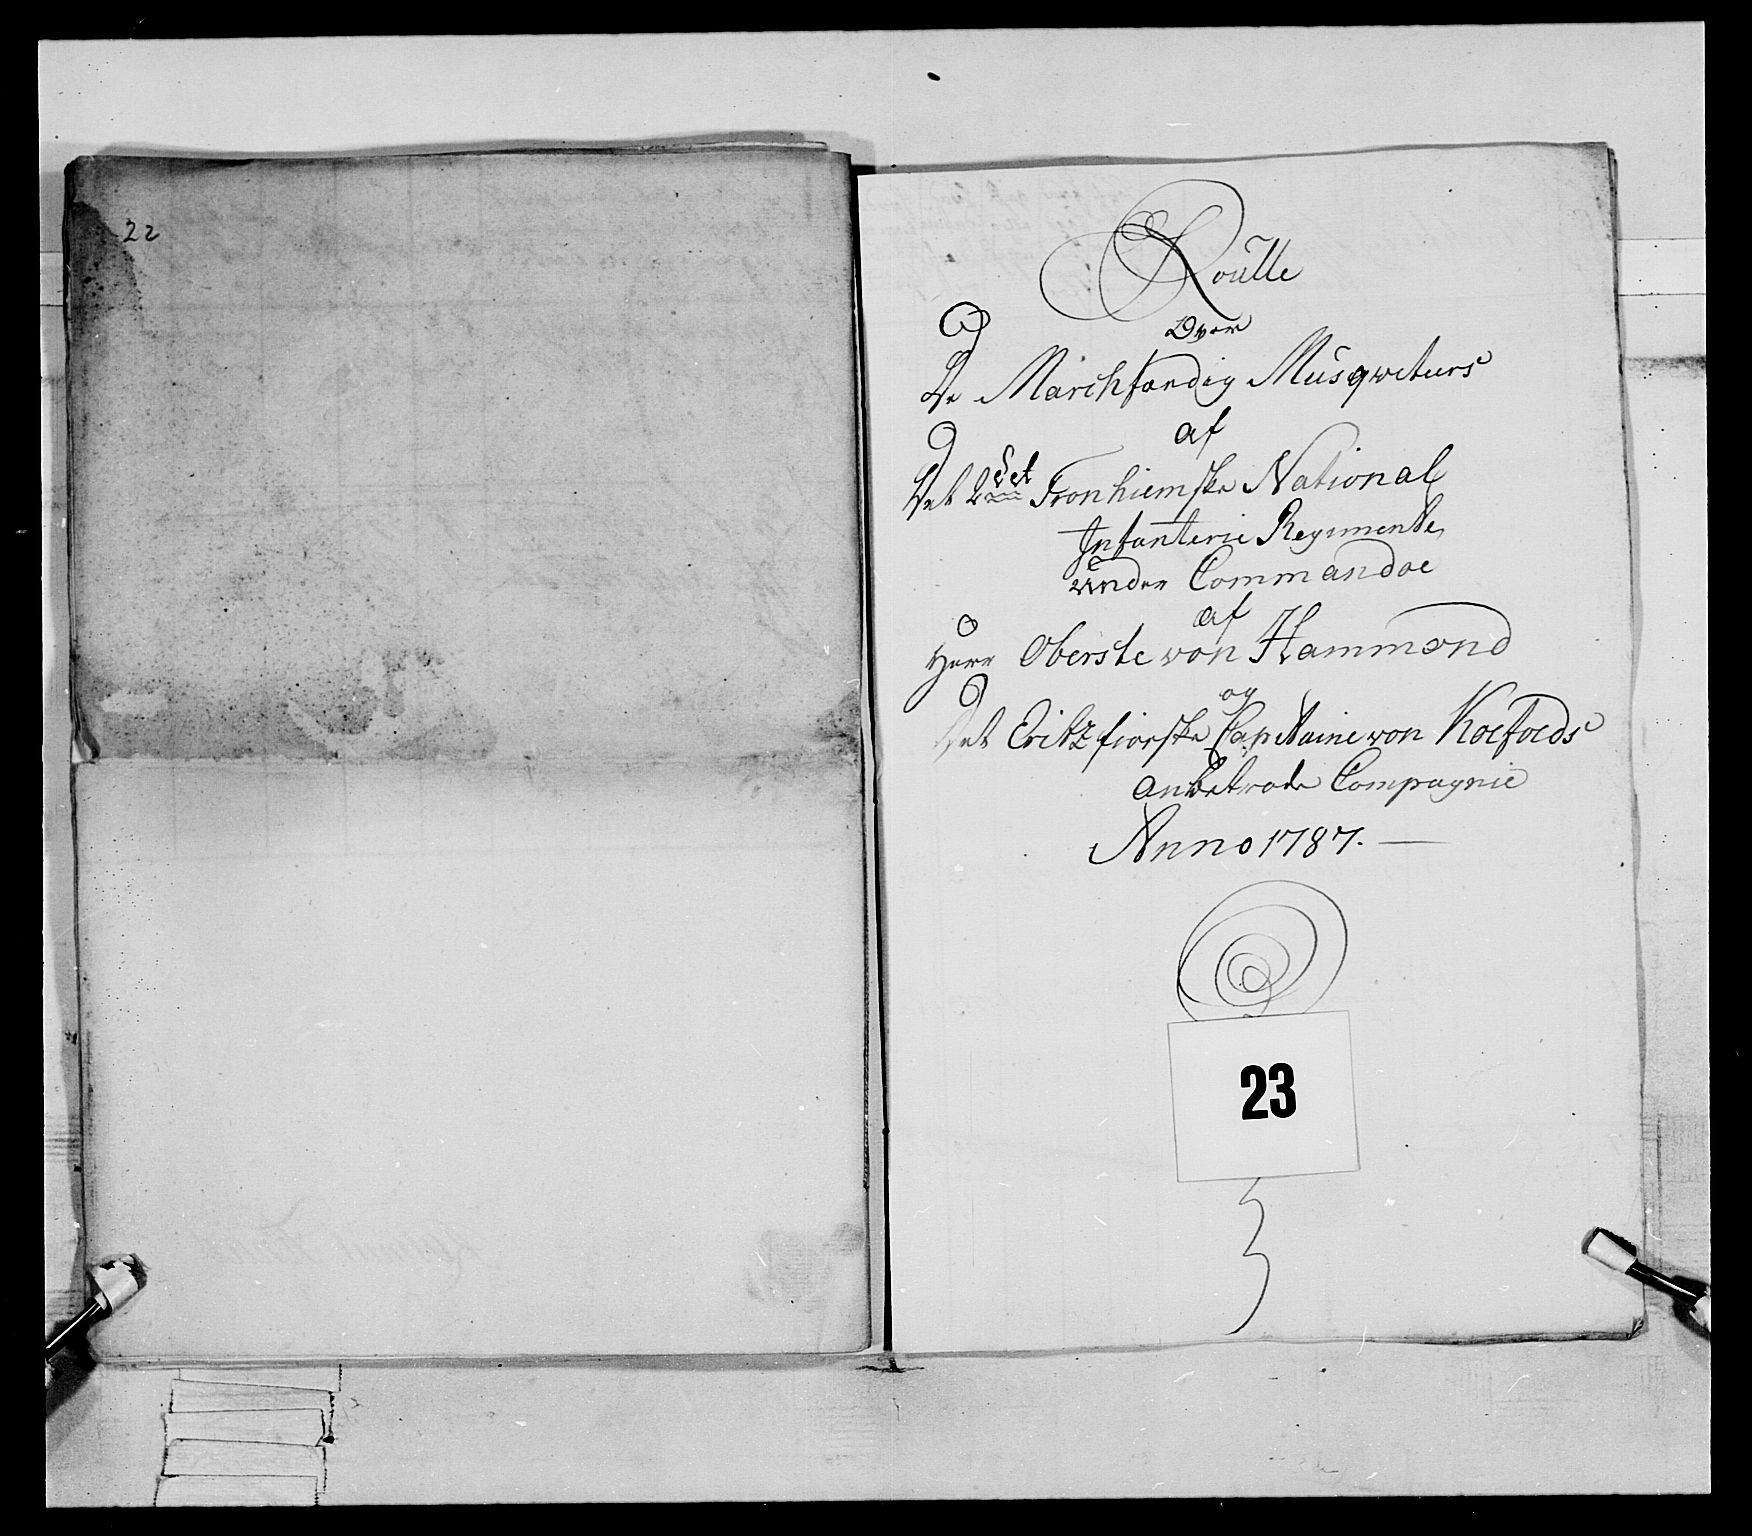 22
Roulle
Over
De Marchfærdig Musqweteurs
af
Det 2det Tronhiemske National
Infanterie Regimente
under Commandoe
af
Herr Oberste von Hammond
og
Det Eritzfiorske Capitaine von Koefoeds
anbetrode Compagnie
Anno 1787.
23